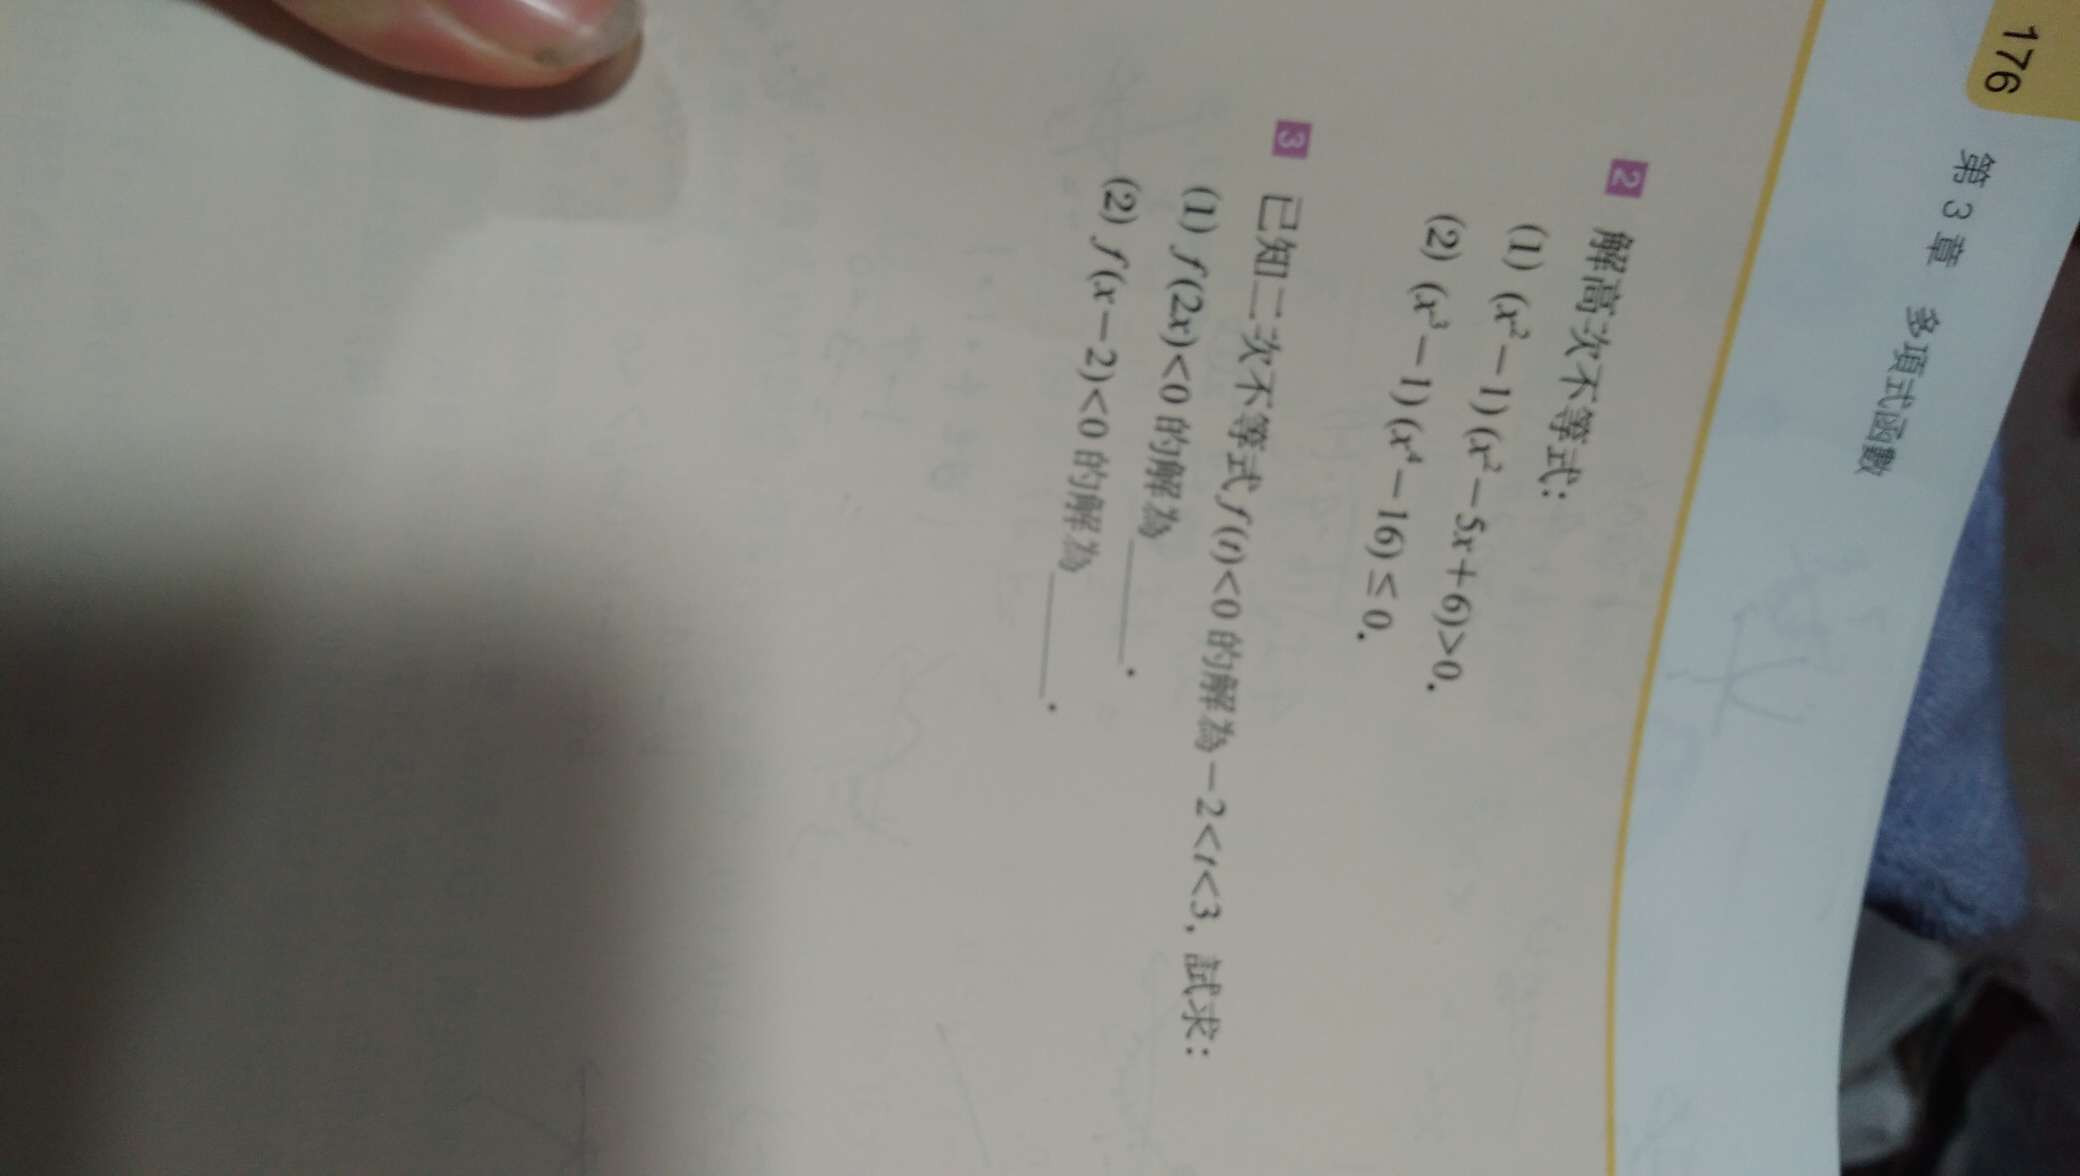 176
第 3 章 多項式函數
2 解高次不等式:
(1) (x² − 1)(x² − 5x + 6) > 0.
(2) (x³ − 1)(x⁴ − 16) ≤ 0.
3 已知二次不等式 f(t) < 0 的解為 −2 < t < 3, 試求:
(1) f(2x) < 0 的解為______.
(2) f(x − 2) < 0 的解為______.